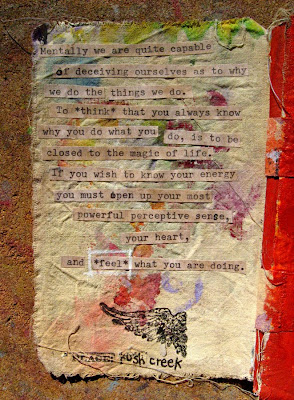 Mentally we are quite capable
of deceiving ourselves as to why
we do the things we do.
To *think* that you always know
why you do what you do, is to be
closed to the magic of life.
If you wish to know your energy
you must open up your most
powerful perceptive sense,
your heart,
and *feel* what you are doing.
rush creek